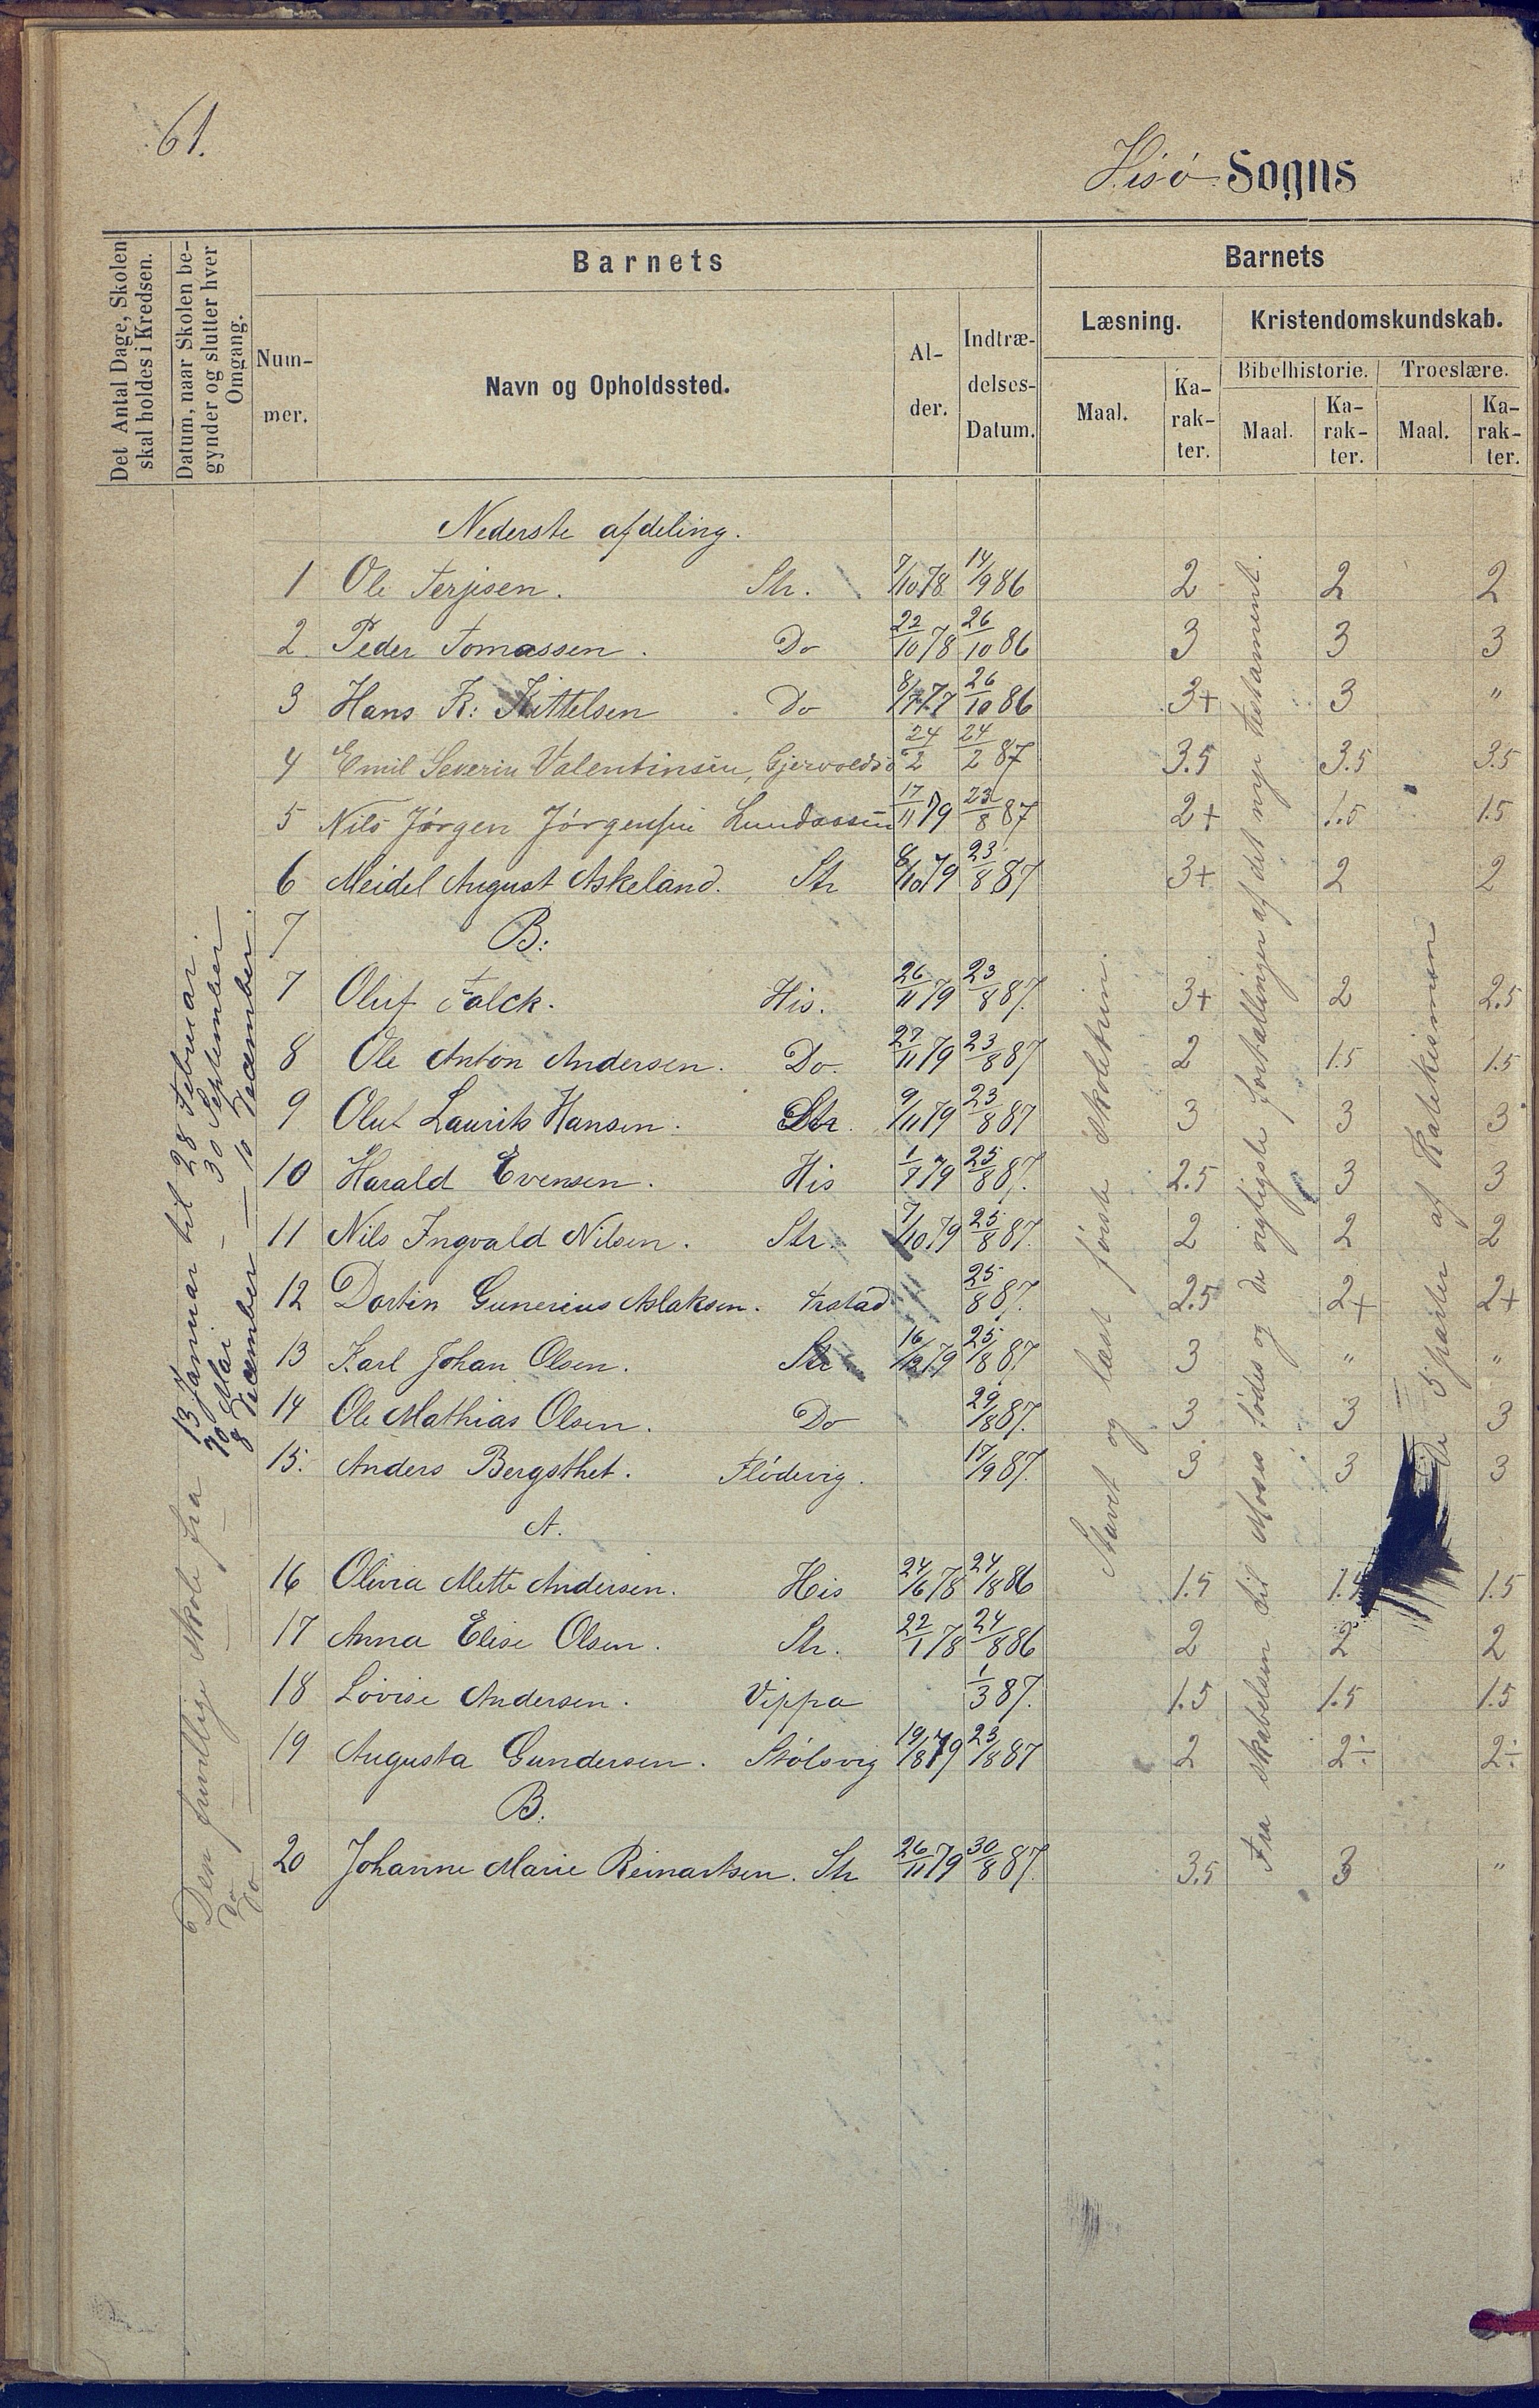 61.
Hisö Sogns
Det Antal Dage, Skolen
skal holdes i Kredsen.
Datum, naar Skolen be-
gynder og slutter hver
Omgang.
Barnets
Num-
mer.
Navn og Opholdssted.
Al-
der.
Indtræ-
delses-
Datum.
Barnets
Læsning.
Kristendomskundskab.
Maal.
Ka-
rak-
ter.
Bibelhistorie.
Troeslære.
Maal.
Ka-
rak-
ter.
Maal.
Ka-
rak-
ter.
Nederste afdeling.
1 Ole Terjesen. Str. 7/10 78 14/9 86 2 2 2
2 Peder Tomassen. Do 22/10 78 26/10 86 3 3 3
3 Hans K: Kittelsen Do 8/7 77 26/10 86 3+ 3 "
4 Emil Severin Valentinsen, Gjervoldsö 24/2 24/2 87 3.5 3.5 3.5
5 Nils Jörgen Jörgensen 17/11 79 23/8 87 2+ 1.5 1.5
6 Meidel August Askeland. Str 8/10 79 23/8 87 3+ 2 2
7 B:
7 Oluf Falck. His. 26/11 79 23/8 87. 3+ 2 2.5
8 Ole Anton Andersen. Do. 27/11 79 23/8 87 2 1.5 1.5
9 Oluf Laurits Hansen. Str. 9/11 79 23/8 87 3 3 3
10 Harald Evensen. His 79 25/8 87. 2.5 3 3
11 Nils Ingvald Nilsen. Str. 7/10 79 25/8 87. 2 2 2
12 Dortin Gunerius Aslaksen. Trstad 25/8 87. 2.5 2+ 2+
13 Karl Johan Olsen. Str 16/12 79 25/8 87. 3 " "
14 Ole Mathias Olsen. Do 29/8 87. 3 3 3
15. Anders Bergsthet. Flödevig. 17/9 87. 3 3 3
A.
16 Olivia Mette Andersen. His 24/6 78 24/8 86 1.5 1.5 1.5
17 Anna Elise Olsen. Str. 22/1 78 24/8 86 2 2 2
18 Lovise Andersen. Vippa 1/3 87. 1.5 1.5 1.5
19 Augusta Gundersen. Stölsvig 19/8 79 23/8 87 2 2÷ 2÷
B.
20 Johanne Marie Reinartsen. Str 26/11 79 30/8 87. 3.5 3 "
Den frivillige skole fra 13 Januar til 28 Februar.
Do — — Mai — 30 September
Do — — 8 December — 10 December.
Stavet og læst förste skoletrin.
Fra skabelsen til Moses födes og de vigtigste fortællinger af det nye testament.
5 parter af Katekismen